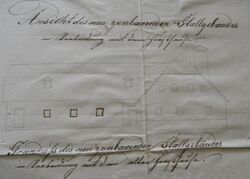 Ansicht des neu zu erbauenden Stallgebäudes
in Verbindung mit dem
Grundriß des neu zu erbauenden Stallgebäudes
in Verbindung mit dem alten